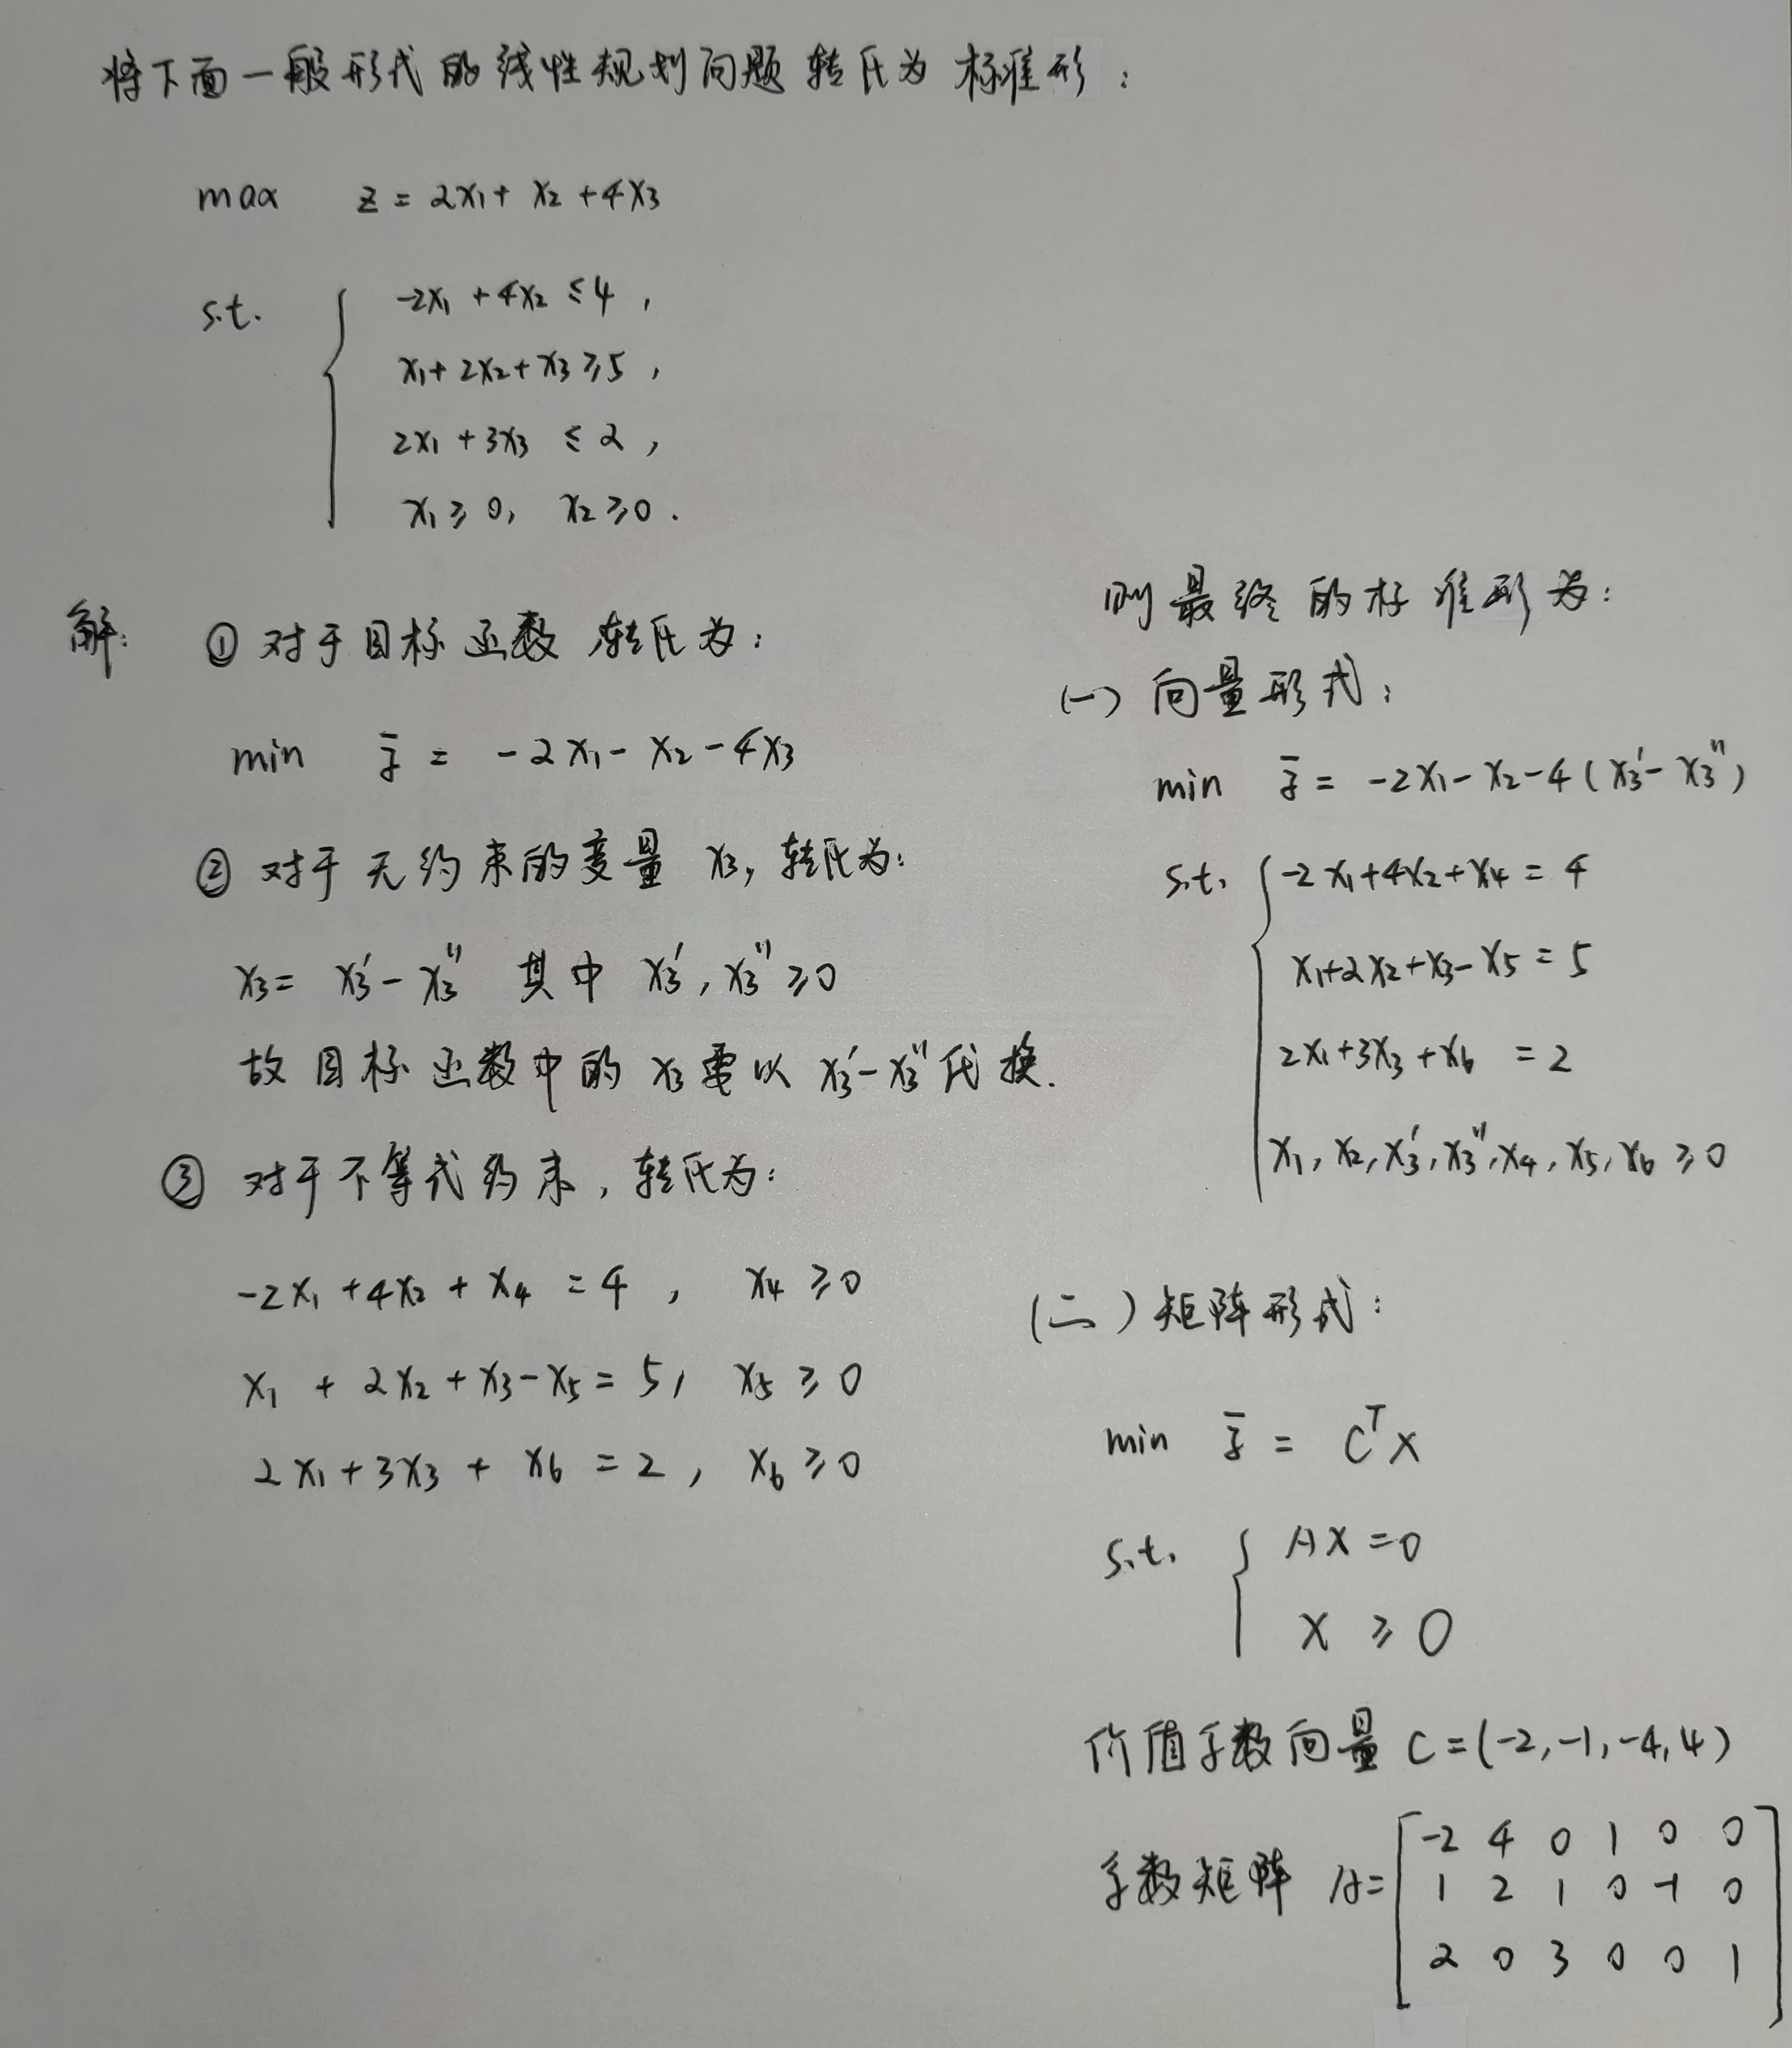 将下面一般形式的线性规划问题转化为标准形：
max z = 2x₁ + x₂ + 4x₃
s.t. { -2x₁ + 4x₂ ≤ 4，
x₁ + 2x₂ + x₃ ≥ 5，
2x₁ + 3x₃ ≤ 2，
x₁ ≥ 0， x₂ ≥ 0．
解： ① 对于目标函数转化为：
min z̄ = -2x₁ - x₂ - 4x₃
② 对于无约束的变量 x₃，转化为：
x₃ = x₃′ - x₃″ 其中 x₃′, x₃″ ≥ 0
故目标函数中的 x₃ 需以 x₃′ - x₃″ 代换．
③ 对于不等式约束，转化为：
-2x₁ + 4x₂ + x₄ = 4 ， x₄ ≥ 0
x₁ + 2x₂ + x₃ - x₅ = 5， x₅ ≥ 0
2x₁ + 3x₃ + x₆ = 2， x₆ ≥ 0
则最终的标准形为：
(一) 向量形式：
min z̄ = -2x₁ - x₂ - 4(x₃′ - x₃″)
s.t. { -2x₁ + 4x₂ + x₄ = 4
x₁ + 2x₂ + x₃ - x₅ = 5
2x₁ + 3x₃ + x₆ = 2
x₁, x₂, x₃′, x₃″, x₄, x₅, x₆ ≥ 0
(二) 矩阵形式：
min z̄ = CᵀX
s.t. { AX = 0
X ≥ 0
价值系数向量 C = (-2, -1, -4, 4)
系数矩阵 A = [ -2 4 0 1 0 0
1 2 1 0 -1 0
2 0 3 0 0 1 ]